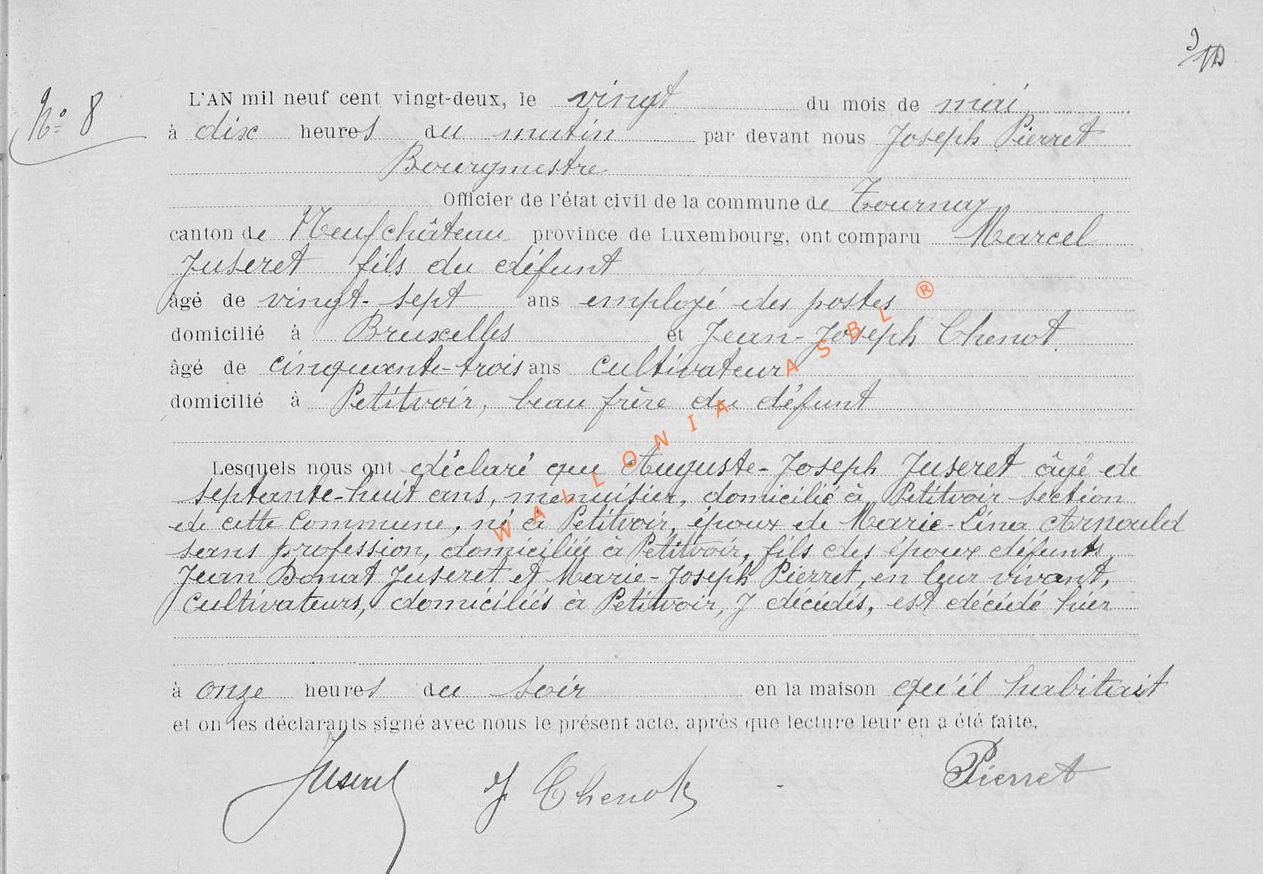 No 8
L'AN mil neuf cent vingt-deux, le vingt du mois de mai
à dix heures du matin par devant nous Joseph Pierret
Bourgmestre
Officier de l'état civil de la commune de Tournay
canton de Neufchâteau province de Luxembourg, ont comparu Marcel
Juseret fils du défunt
âgé de vingt-sept ans employé des postes
domicilié à Bruxelles et Jean-Joseph Chenot
âgé de cinquante-trois ans cultivateur
domicilié à Petitvoir, beau frère du défunt
Lesquels nous ont déclaré que Auguste-Joseph Juseret âgé de
septante-huit ans, menuisier, domicilié à Petitvoir section
de cette commune, né à Petitvoir, époux de Marie-Lina Arnould
sans profession, domiciliée à Petitvoir, fils des époux défunts
Jean Donat Juseret et Marie-Joseph Pierret, en leur vivant,
cultivateurs, domiciliés à Petitvoir, y décédés, est décédé hier
à onze heures du soir en la maison qu'il habitait
et on les déclarants signé avec nous le présent acte, après que lecture leur en a été faite.
Juseret J Chenot Pierret
WALLONIA ASBL ®